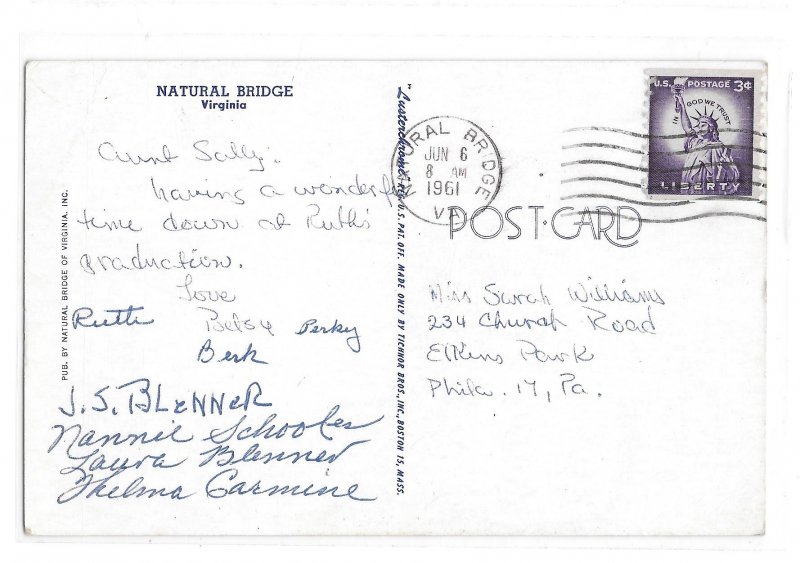 NATURAL BRIDGE
Virginia
Aunt Sally:
having a wonderful
time down at Ruth's
graduation.
Love
Ruth Betsy Perky
Berk
J. S. BLENNER
Nannie Schooles
Laura Blenner
Thelma Carmine
PUB. BY NATURAL BRIDGE OF VIRGINIA, INC.
"Lusterchrome" REG. U.S. PAT. OFF. MADE ONLY BY TICHNOR BROS., INC., BOSTON 15, MASS.
NATURAL BRIDGE
JUN 6
8 AM
1961
VA
U.S. POSTAGE 3¢
IN GOD WE TRUST
LIBERTY
POST-CARD
Miss Sarah Williams
234 Church Road
Elkins Park
Phila. 17, Pa.